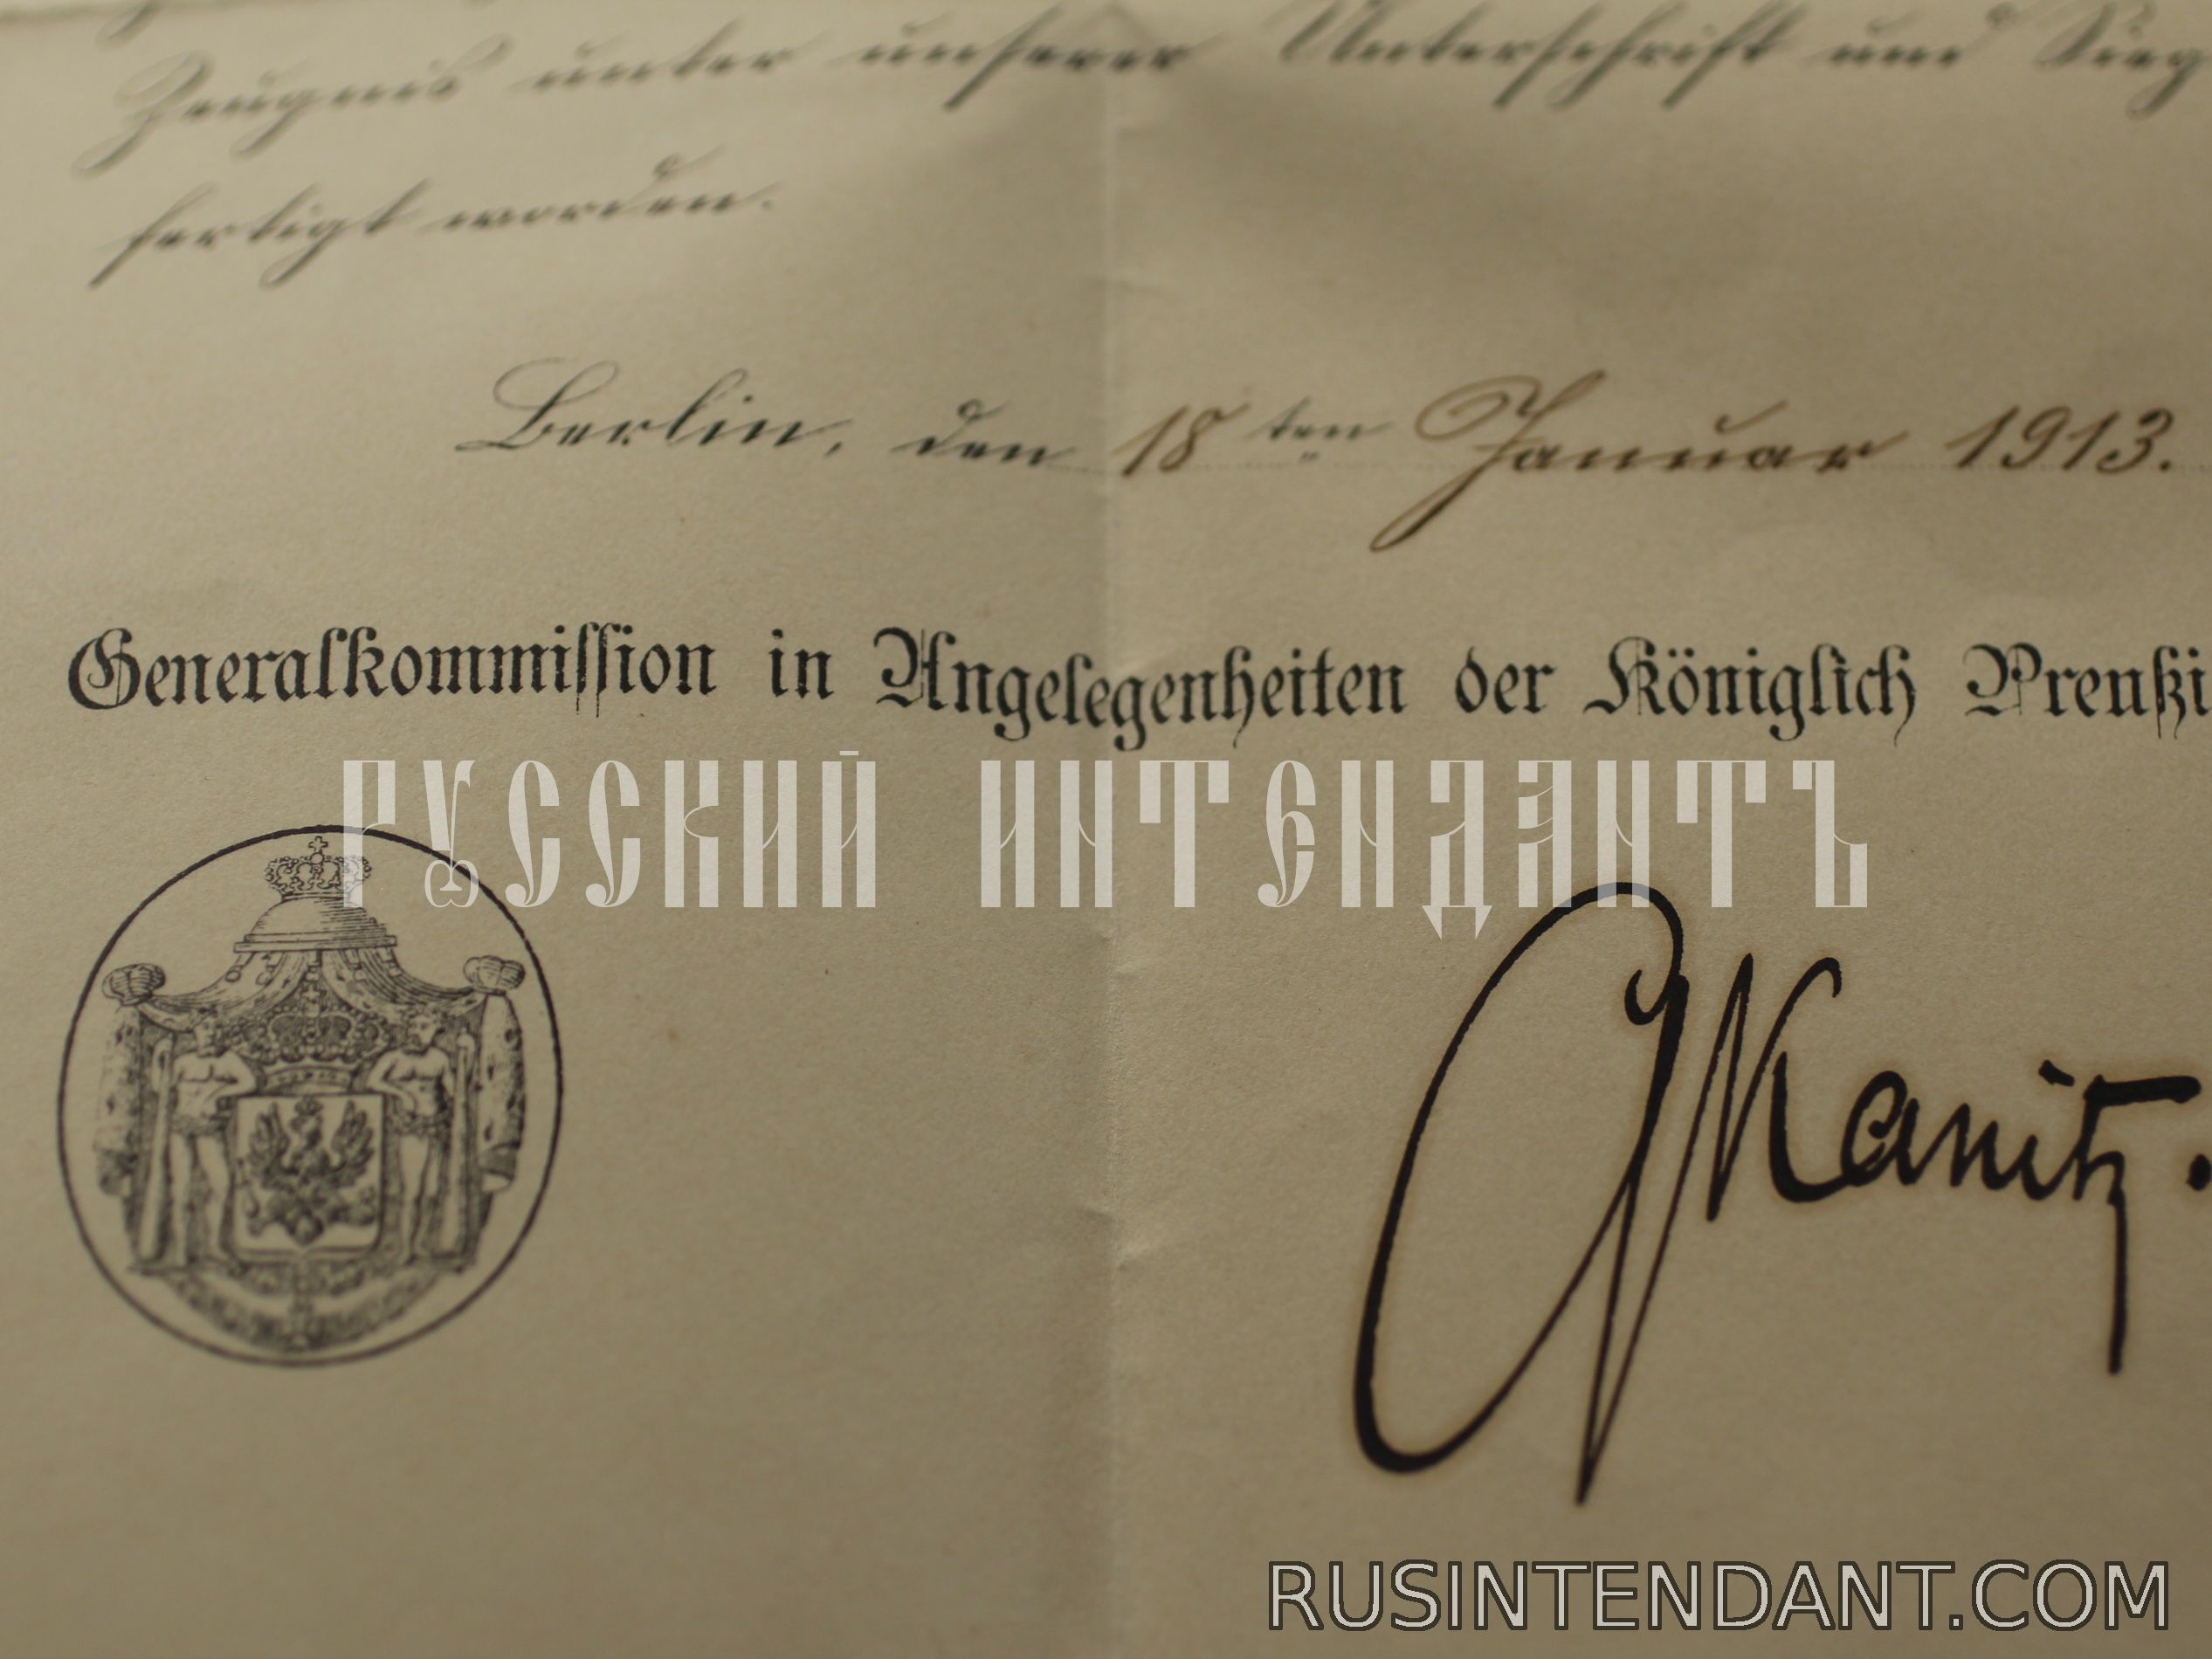 Zeugnis unter unserer Unterschrift und Sieg
fertigt worden.
Berlin, den 18ten Januar 1913.
Generalkommission in Angelegenheiten der Königlich Preußi
РУССКИЙ ИНТЕНДАНТЪ
Kanitz.
RUSINTENDANT.COM